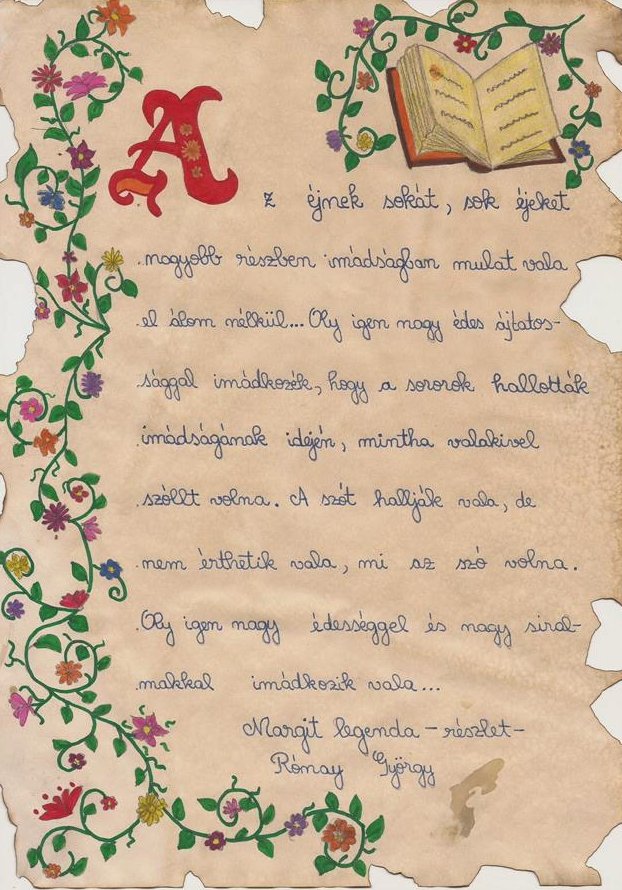 Az éjnek sokát, sok éjeket
nagyobb részben imádságban mulat vala
el álom nélkül... Oly igen nagy édes ájtatos-
sággal imádkozék, hogy a sororok hallották
imádságának idején, mintha valakivel
szóllt volna. A szót hallják vala, de
nem érthetik vala, mi az szó volna.
Oly igen nagy édességgel és nagy siral-
makkal imádkozik vala...
Margit legenda - részlet -
Rónay György